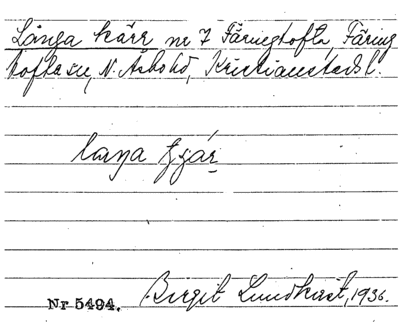 Långa kärr nr 7 Färingtofta, Färing
tofta sn, N. Åsbo hd, Kristianstads l.
laŋa çár
Nr 5494. Birgit Lundkvist, 1936.